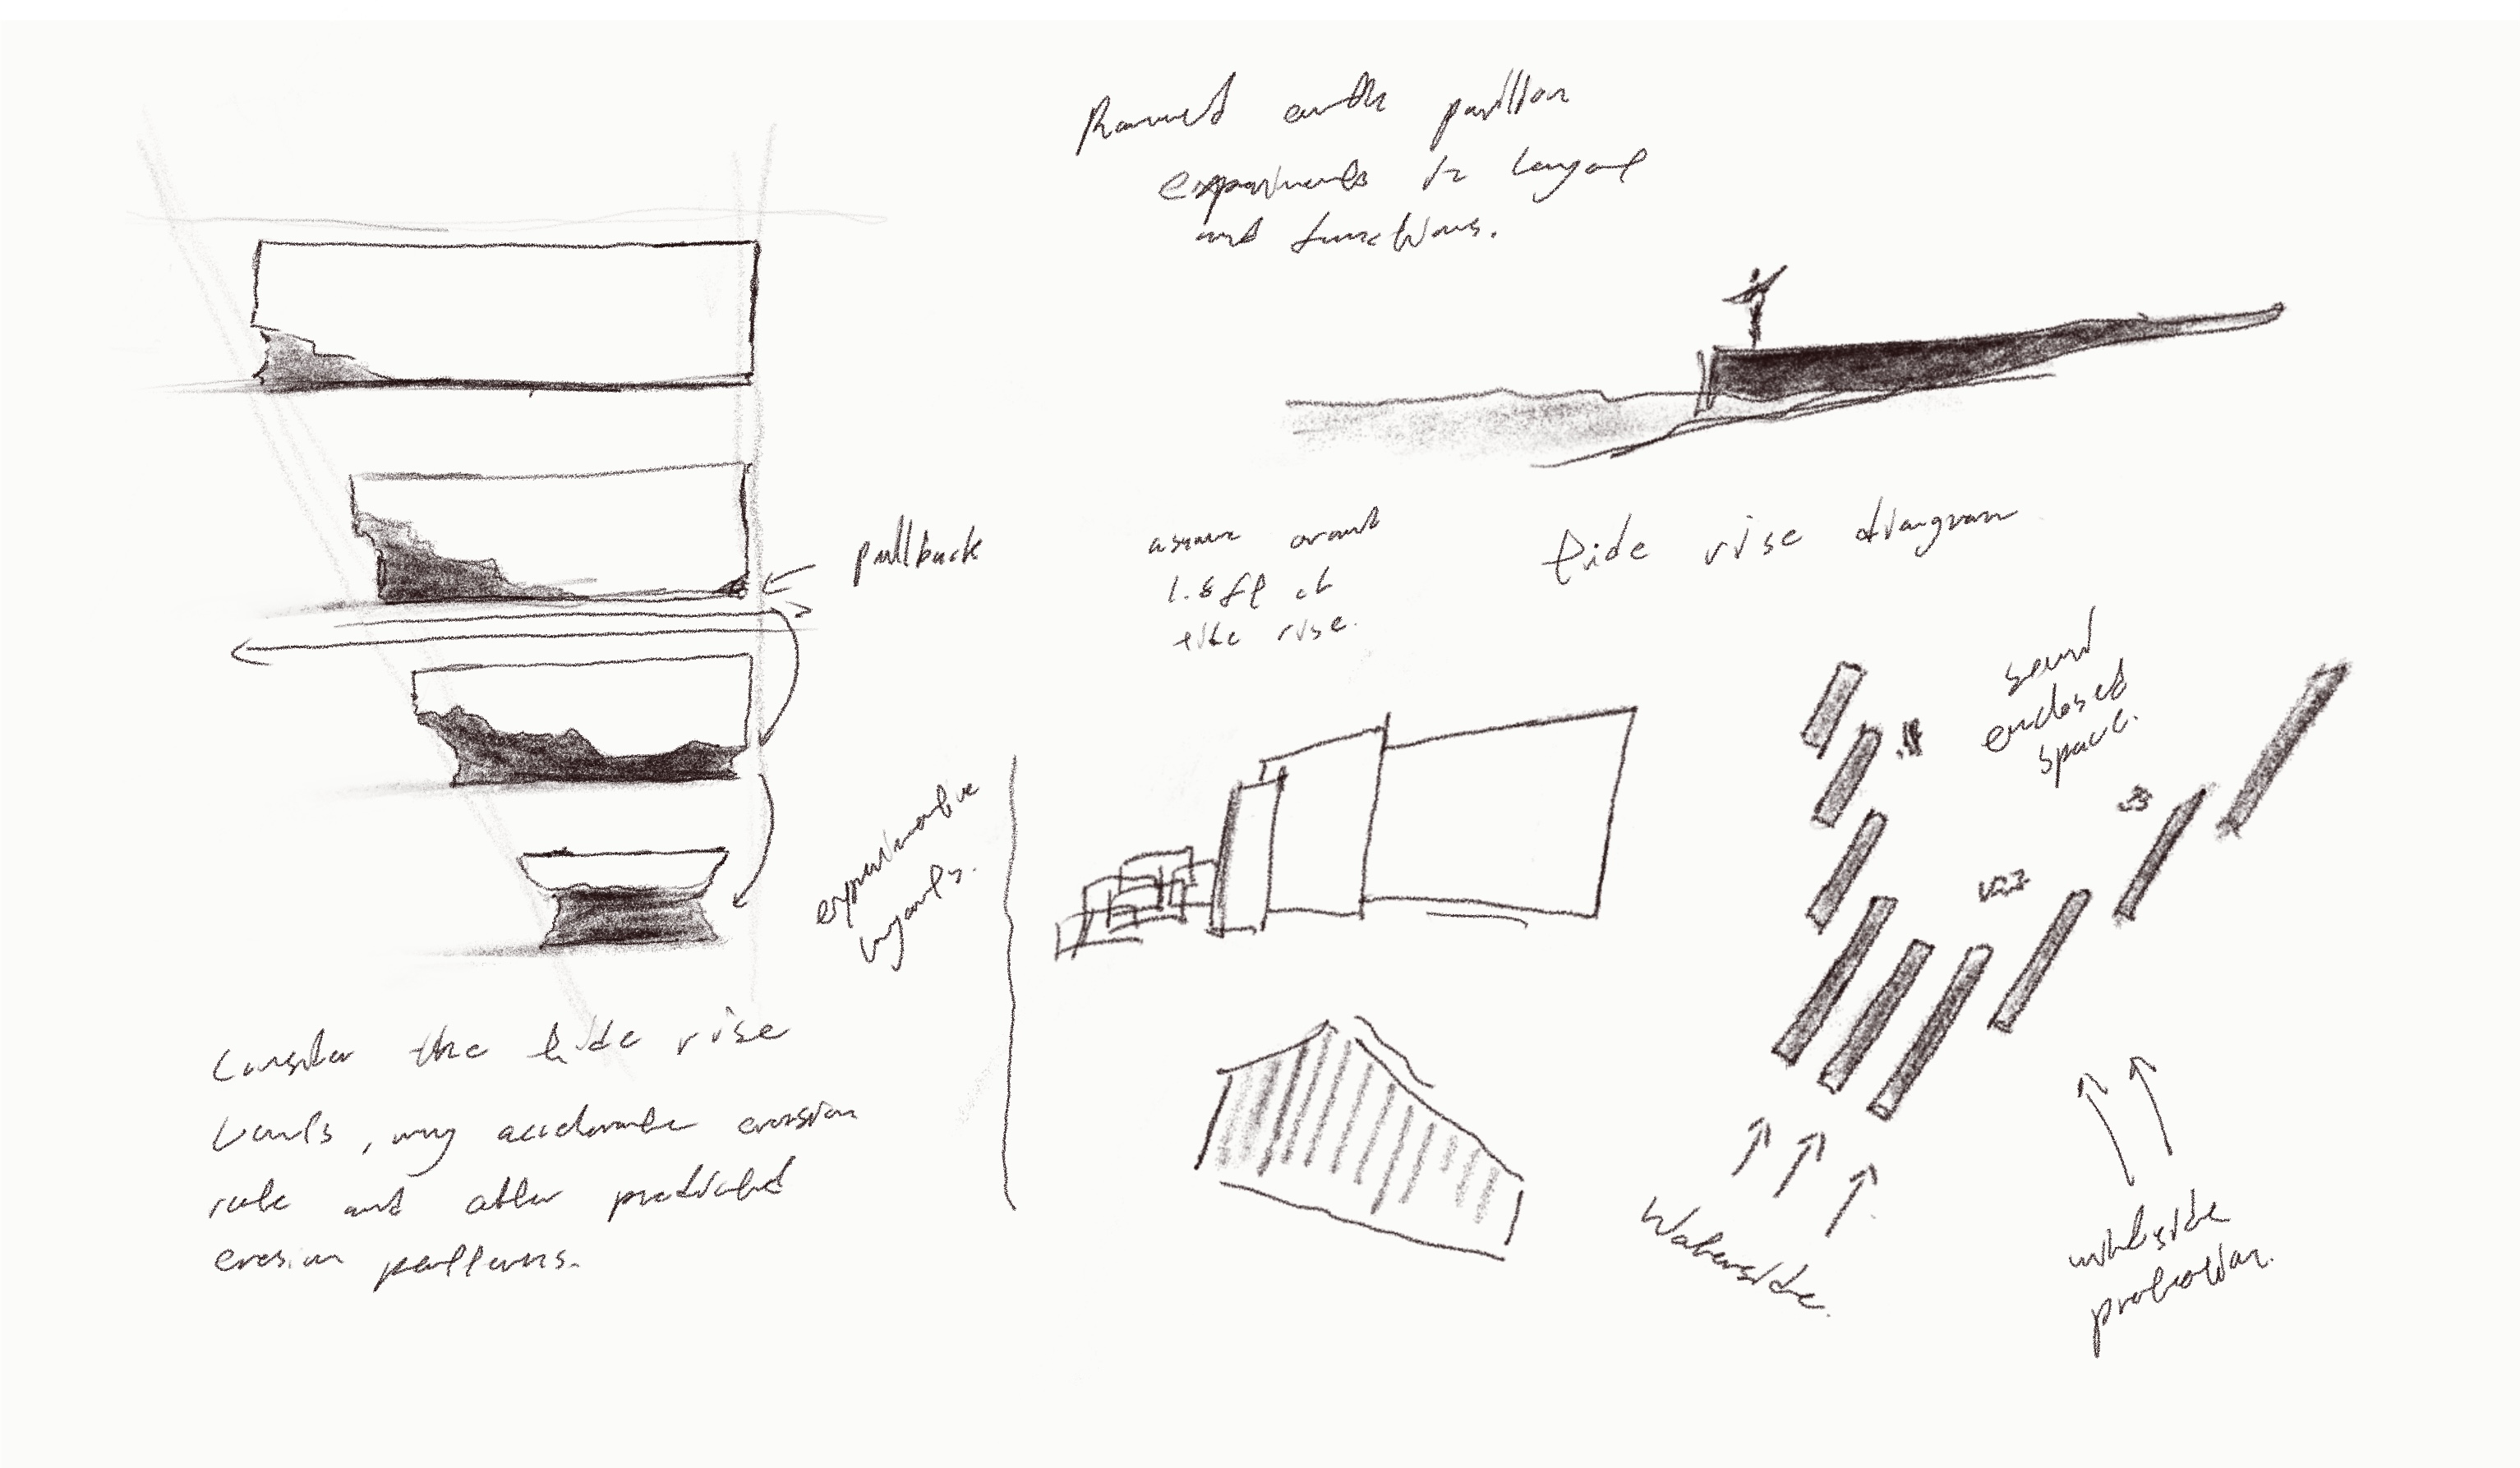 Rammed earth pavillion
experiments in layout
and functions.
pullback
assume around
1.8 ft at
tide rise.
tide rise diagram
semi
enclosed
space.
experimentative
layouts.
Consider the tide rise
levels, may accelerate erosion
rate and alter predicted
erosion patterns.
Waterside.
windside
protection.